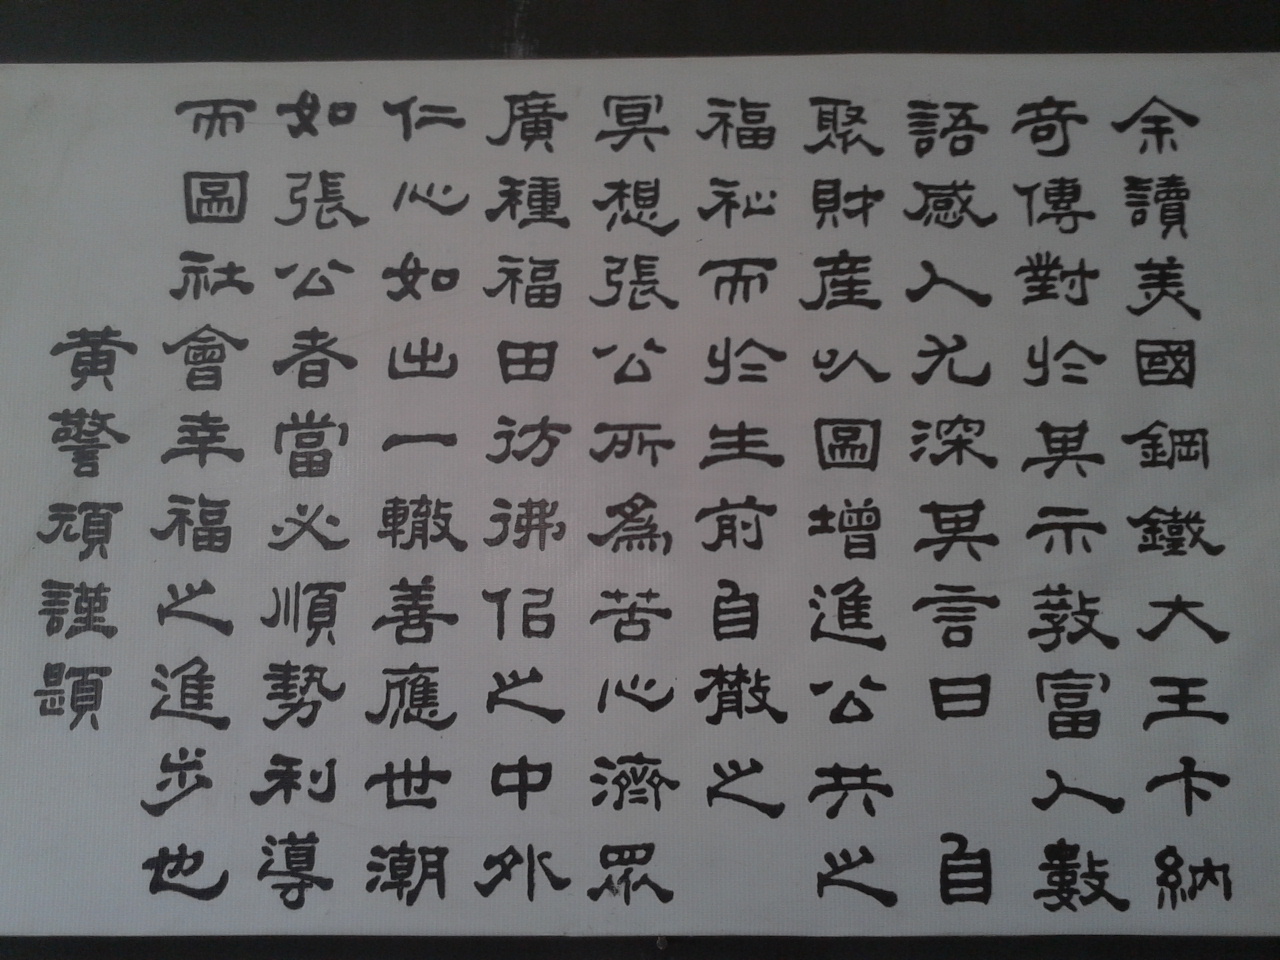 余讀美國鋼鐵大王卞納
奇傳對於其示教富人數
語感人尤深其言曰　自
聚財產以圖增進公共之
福祉而於生前自散之
冥想張公所為苦心濟眾
廣種福田彷彿佀之中外
仁心如出一轍善應世潮
如張公者當必順勢利導
而圖社會幸福之進步也
黃警頑謹題